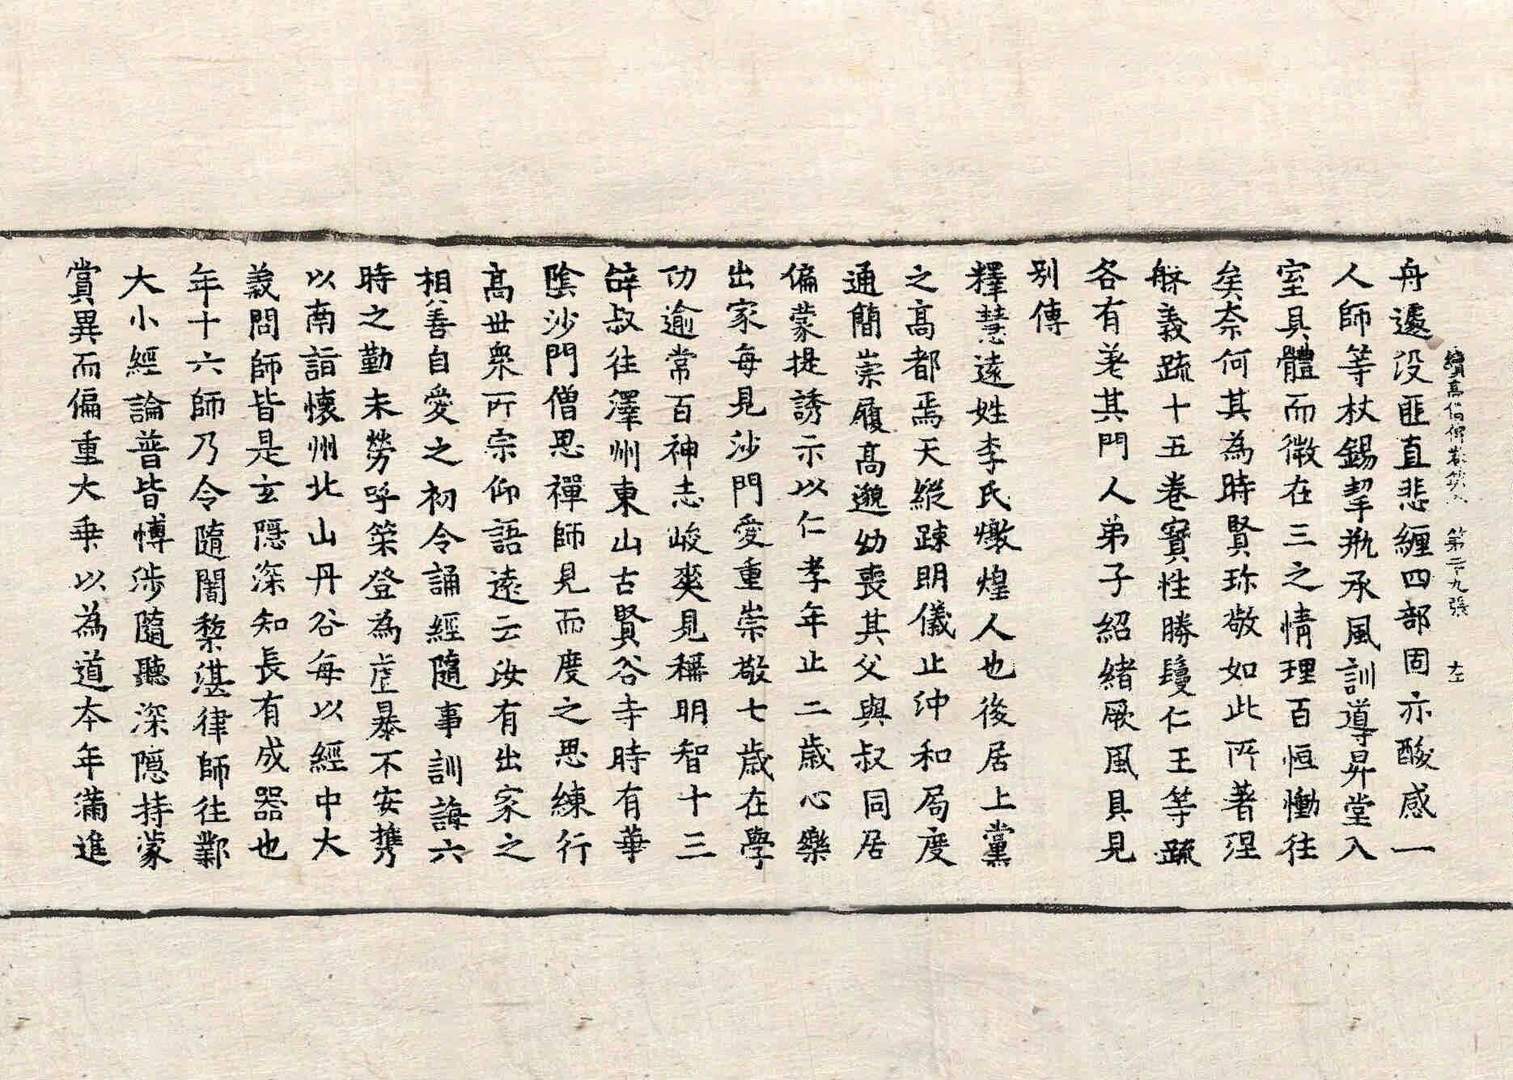 續高僧傳卷第八 第二十九張 左
舟遽没匪直悲纏四部固亦酸感一
人師等杖錫挈瓶承風訓導昇堂入
室具體而微在三之情理百恒慟往
矣奈何其為時賢珎敬如此所著涅
槃義疏十五卷寶性勝鬘仁王等疏
各有差其門人弟子紹緒厥風具見
別傳
釋慧遠姓李氏燉煌人也後居上黨
之高都焉天縱踈明儀止沖和局度
通簡崇履高邈幼喪其父與叔同居
偏蒙提誘示以仁孝年止二歲心樂
出家每見沙門愛重崇敬七歲在學
功逾常百神志峻爽見稱明智十三
辝叔往澤州東山古賢谷寺時有華
陰沙門僧思禪師見而度之思練行
高丗衆所宗仰語遠云汝有出家之
相善自愛之初令誦經隨事訓誨六
時之勤未勞呼策登為虐暴不安携
以南詣懷州北山丹谷每以經中大
義問師皆是玄隱深知長有成器也
年十六師乃令隨闍棃湛律師往鄴
大小經論普皆博涉隨聽深隱持蒙
賞異而偏重大乗以為道夲年滿進